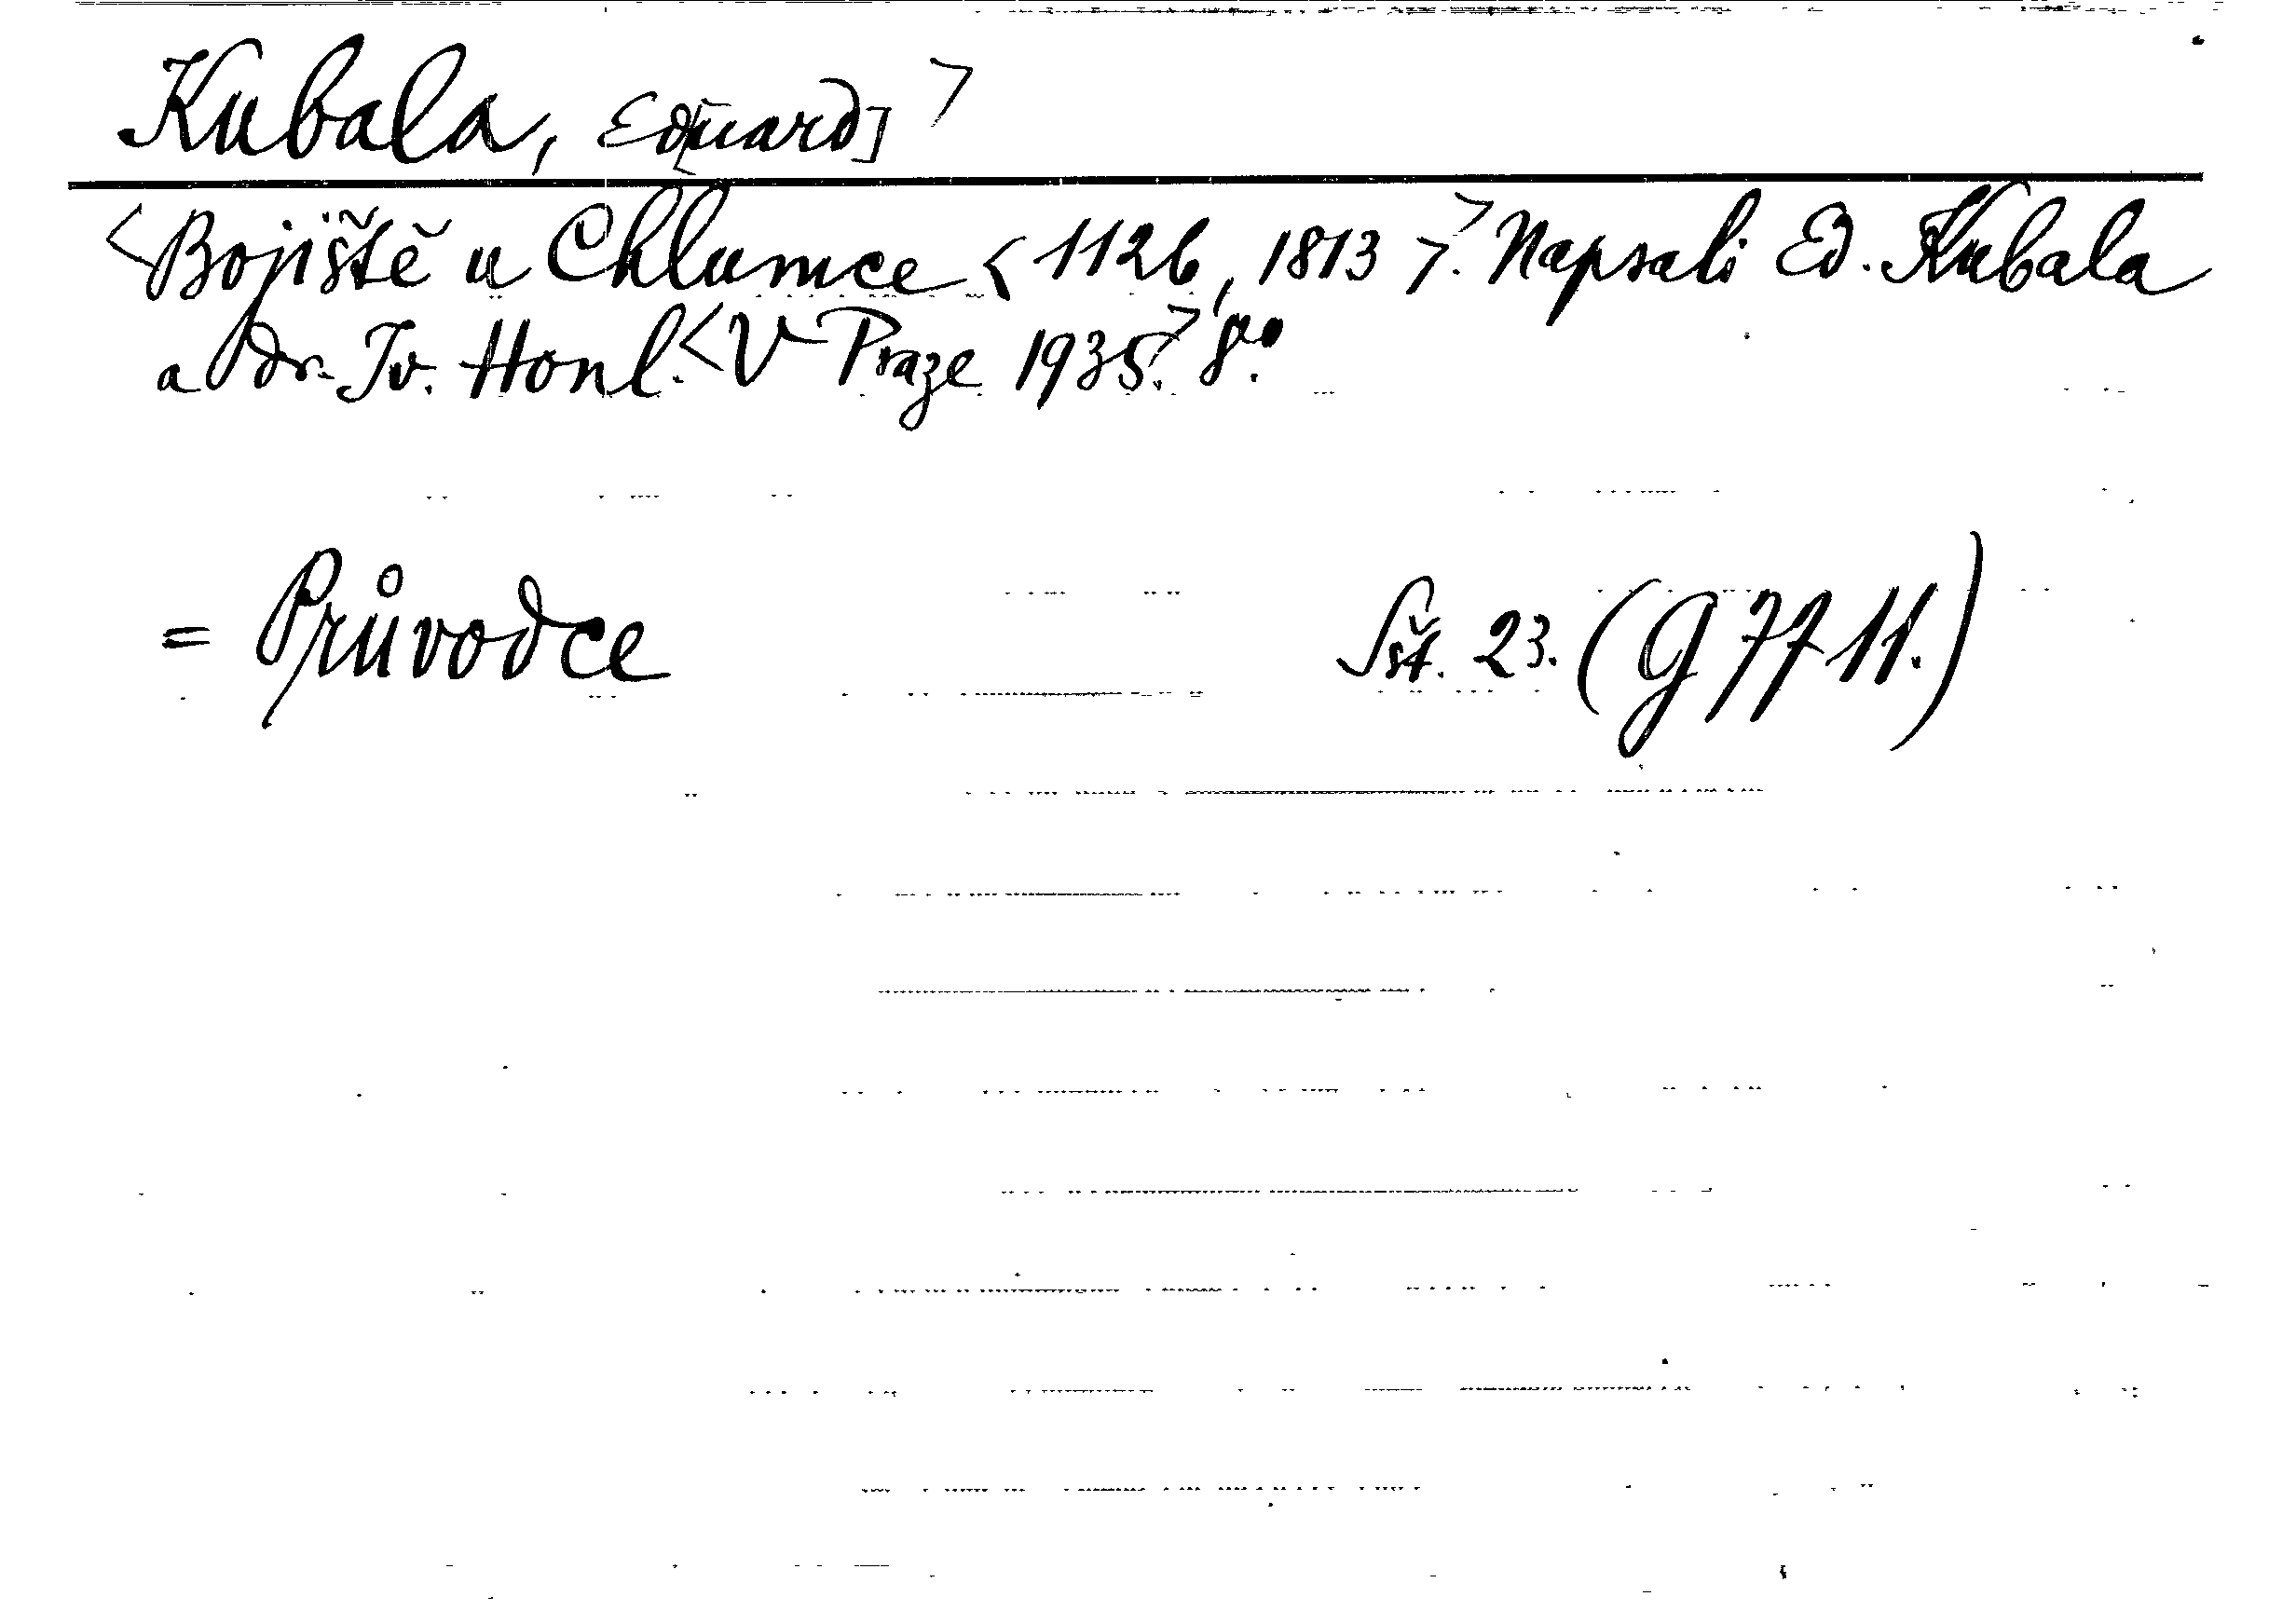 Kubala, Ed[uard] >
<Bojiště u Chlumce < 1126, 1813 >.> Napsali Ed. Kubala
a dr. Iv. Honl. <V Praze 1935.> 8°.
= Průvodce Sšt. 23. (G 7711.)